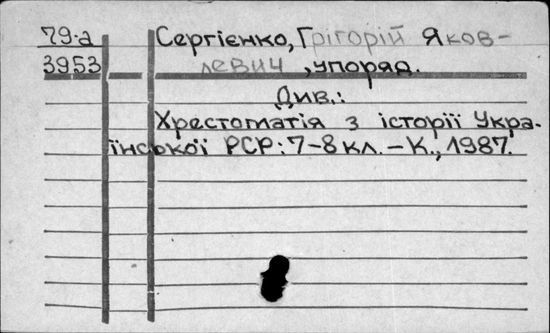 79-а Сергієнко, Грігорій Яков-
3953 левич, упоряд.
Див.:
Хрестоматія з історії Укра-
їнської РСР: 7-8 кл. - К., 1987.